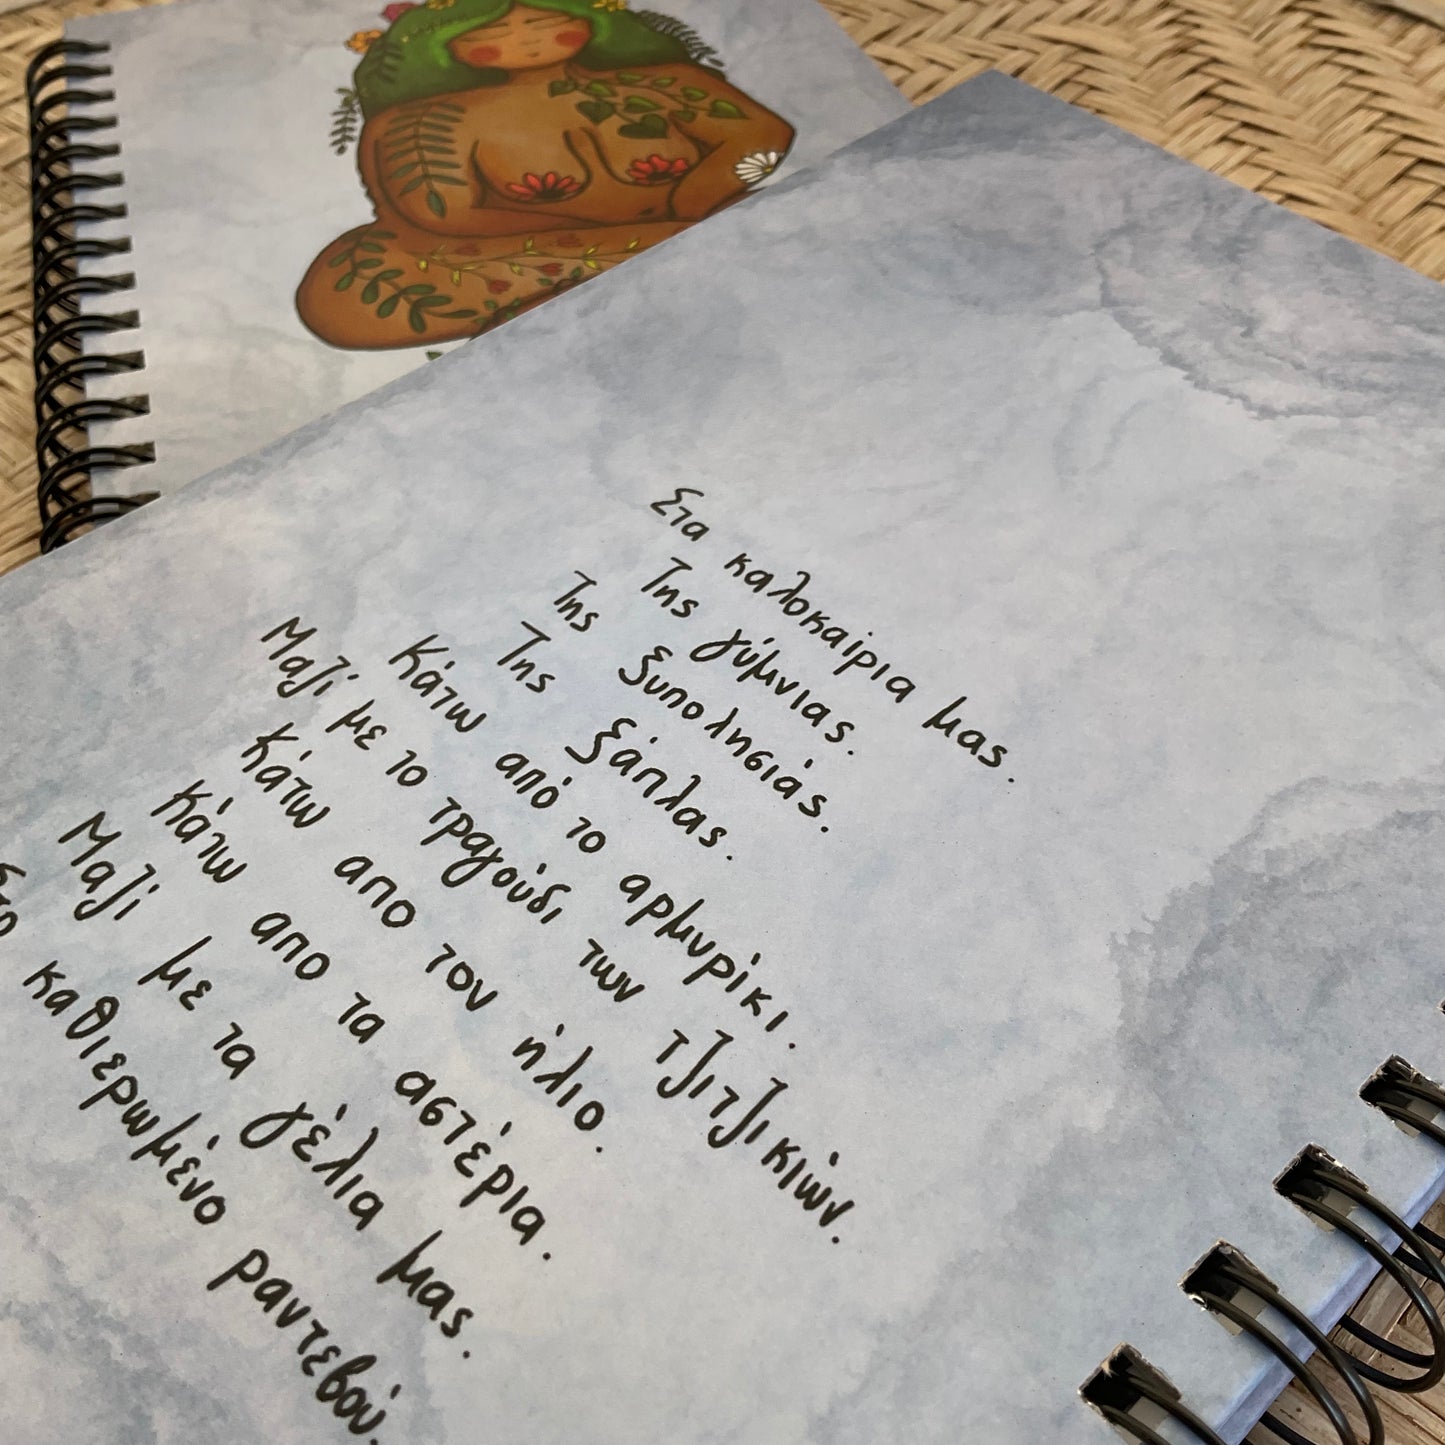 Στα καλοκαίρια μας.
Της γύμνιας.
Της ξυπολησιάς.
Της ξάπλας.
Κάτω από το αρμυρίκι.
Μαζί με το τραγούδι των τζιτζικιών.
Κάτω απο τον ήλιο.
Κάτω απο τα αστέρια.
Μαζί με τα γέλια μας.
Στο καθιερωμένο ραντεβού.